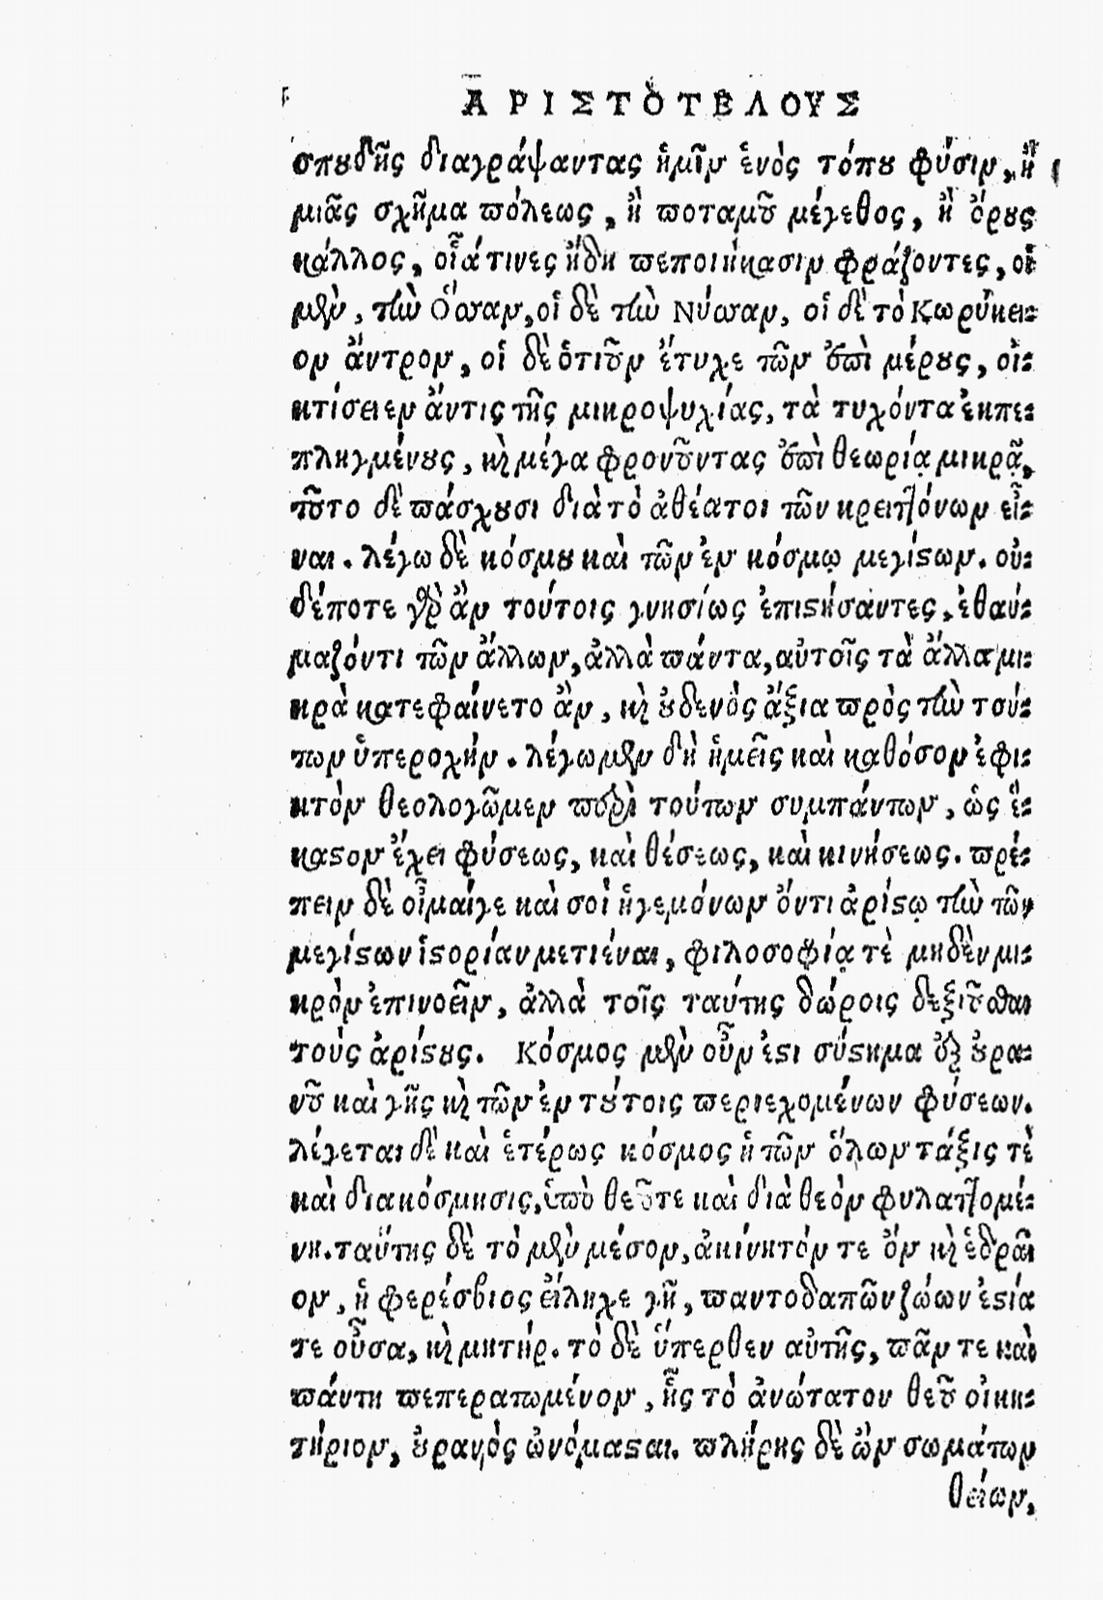 ΑΡΙΣΤΟΤΕΛΟΥΣ
σπουδῆς διαγράψαντας ἡμῖν ἑνὸς τόπου φύσιν, ἢ
μιᾶς σχῆμα πόλεως, ἢ ποταμοῦ μέγεθος, ἢ ὄρους
κάλλος, οἷά τινες ἤδη πεποιήκασιν φράζοντες, οἱ
μὲν, τὴν Ὄσσαν, οἱ δὲ τὴν Νύσσαν, οἱ δὲ τὸ Κωρύκει-
ον ἄντρον, οἱ δὲ ὁτιοῦν ἔτυχε τῶν ἐπὶ μέρους, οἰ-
κτίσειεν ἄν τις τῆς μικροψυχίας, τὰ τυχόντα ἐκπε-
πληγμένους, καὶ μέγα φρονοῦντας ἐπὶ θεωρίᾳ μικρᾷ,
τοῦτο δὲ πάσχουσι διὰ τὸ ἀθέατοι τῶν κρειττόνων εἶ-
ναι. λέγω δὲ κόσμου καὶ τῶν ἐν κόσμῳ μεγίστων. οὐ-
δέποτε γὰρ ἂν τούτοις γνησίως ἐπιστήσαντες, ἐθαύ-
μαζόν τι τῶν ἄλλων, ἀλλὰ πάντα, αὐτοῖς τὰ ἄλλα μι-
κρὰ κατεφαίνετο ἂν, καὶ οὐδενὸς ἄξια πρὸς τὴν τού-
των ὑπεροχήν. λέγωμεν δὴ ἡμεῖς καὶ καθόσον ἐφι-
κτὸν θεολογῶμεν περὶ τούτων συμπάντων, ὡς ἕ-
καστον ἔχει φύσεως, καὶ θέσεως, καὶ κινήσεως. πρέ-
πειν δὲ οἶμαίγε καὶ σοὶ ἡγεμόνων ὄντι ἀρίστῳ τὴν τῶν
μεγίστων ἱστορίαν μετιέναι, φιλοσοφίᾳ τὲ μηδὲν μι-
κρὸν ἐπινοεῖν, ἀλλὰ τοῖς ταύτης δώροις δεξιοῦσθαι
τοὺς ἀρίστους. Κόσμος μὲν οὖν ἐστι σύστημα ἐξ οὐρα-
νοῦ καὶ γῆς καὶ τῶν ἐν τούτοις περιεχομένων φύσεων.
λέγεται δὲ καὶ ἑτέρως κόσμος ἡ τῶν ὅλων τάξις τὲ
καὶ διακόσμησις, ὑπὸ θεοῦ τε καὶ διὰ θεὸν φυλαττομέ-
νη. ταύτης δὲ τὸ μὲν μέσον, ἀκίνητόν τε ὂν καὶ ἑδραῖ
ον, ἡ φερέσβιος εἴληχε γῆ, παντοδαπῶν ζώων ἑστία
τε οὖσα, καὶ μητήρ. τὸ δὲ ὕπερθεν αὐτῆς, πᾶν τε καὶ
πάντη πεπερατωμένον, ἧς τὸ ἀνώτατον θεοῦ οἰκη-
τήριον, οὐρανὸς ὠνόμασται. πλήρης δὲ ὢν σωμάτων
θείων,